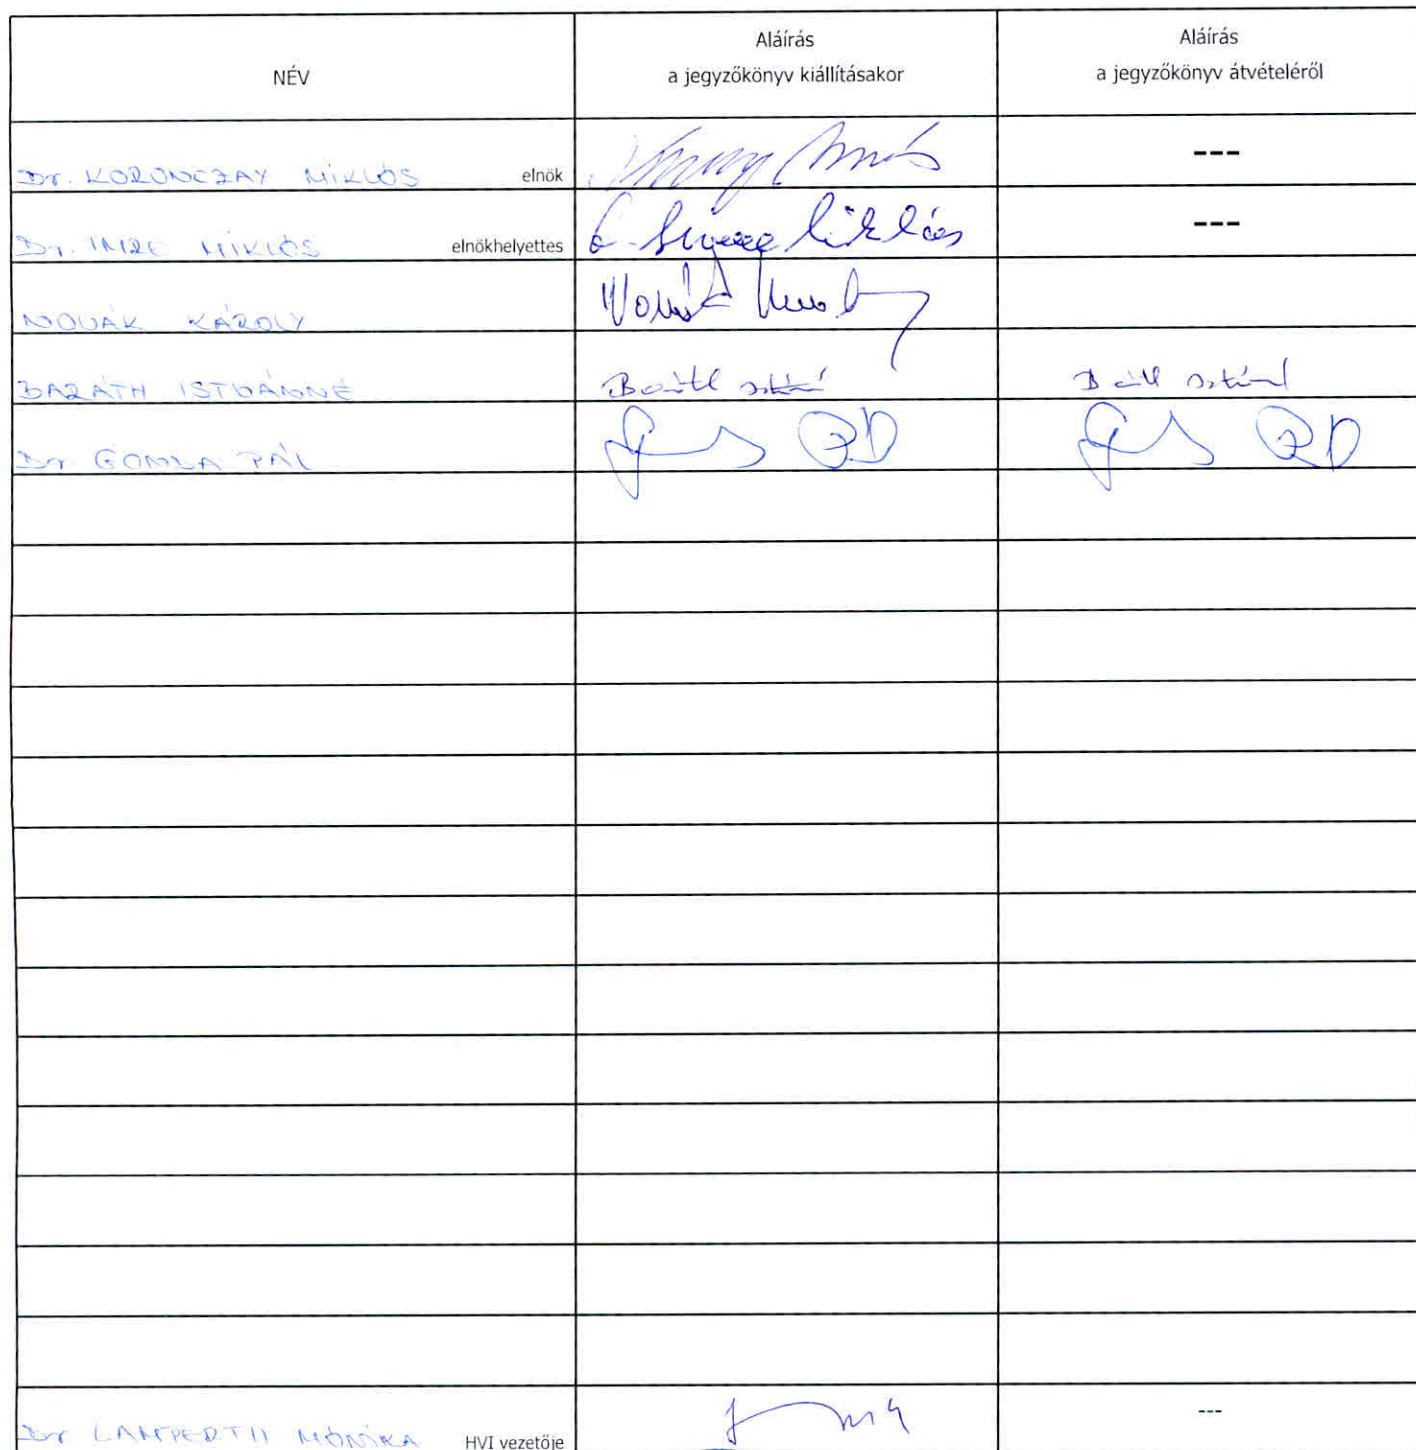 NÉV
Aláírás
a jegyzőkönyv kiállításakor
Aláírás
a jegyzőkönyv átvételéről
Dr. KORONCZAY MIKLÓS elnök ---
Dr. IMRE MIKLÓS elnökhelyettes ---
NOVÁK KÁROLY
BARÁTH ISTVÁNNÉ
Dr. GONDA PÁL
Dr LAMPERTH MÓNIKA HVI vezetője ---